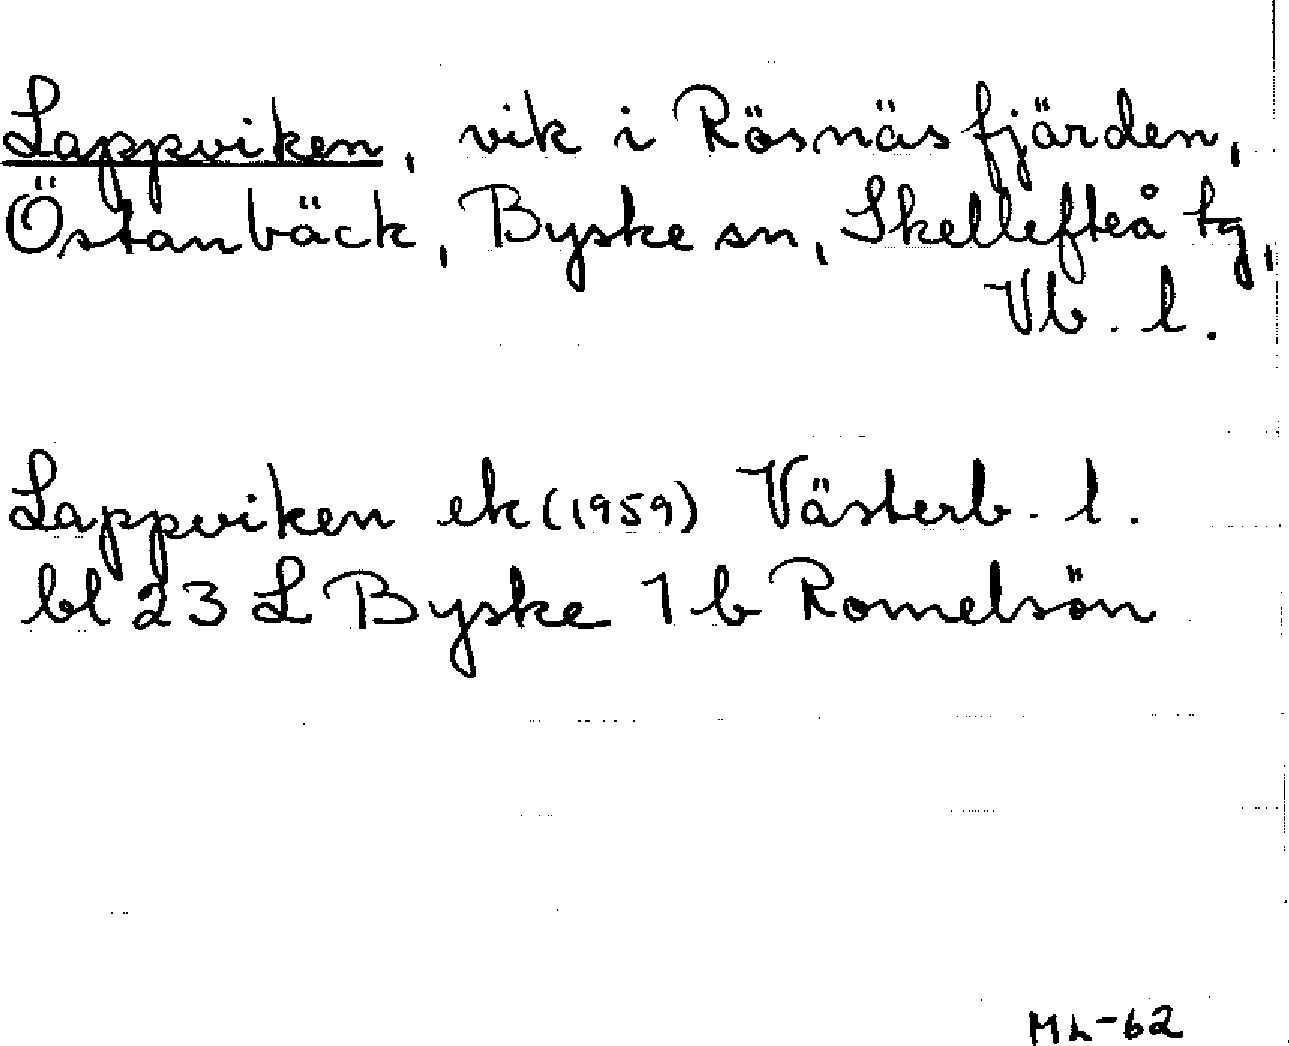 Lappviken, vik i Rösnäsfjärden,
Östanbäck, Byske sn, Skellefteå tg,
Vb. l.
Lappviken ek (1959) Västerb. l.
bl 23 L Byske 1 b Romelsön
ML-62